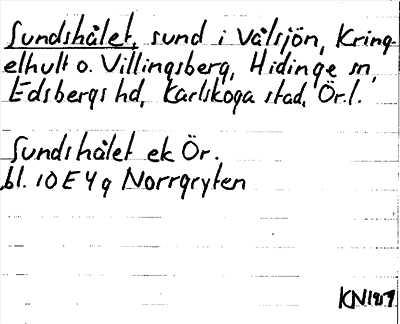 Sundshålet, sund i Válsjön, Kring-
elhult o. Villingsberg, Hidinge sn,
Edsbergs hd, Karlskoga stad, Ör.l.
Sundshålet ek Ör.
bl. 10E4g Norrgryten